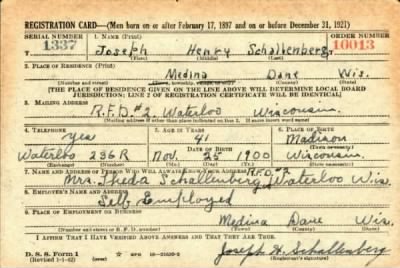 REGISTRATION CARD—(Men born on or after February 17, 1897 and on or before December 31, 1921)
SERIAL NUMBER 1. NAME (Print) ORDER NUMBER
1337 Joseph Henry Schallenberg 10013
(First) (Middle) (Last)
2. PLACE OF RESIDENCE (Print)
Medina Dane Wis.
(Number and street) (Town, township, village, or city) (County) (State)
[THE PLACE OF RESIDENCE GIVEN ON THE LINE ABOVE WILL DETERMINE LOCAL BOARD
JURISDICTION; LINE 2 OF REGISTRATION CERTIFICATE WILL BE IDENTICAL]
3. MAILING ADDRESS
R.F.D. #2, Waterloo Wisconsin
[Mailing address if other than place indicated on line 2. If same insert word same]
4. TELEPHONE 5. AGE IN YEARS 6. PLACE OF BIRTH
yes 41 Madison
DATE OF BIRTH (Town or county)
Waterloo 236R Nov. 25 1900 Wisconsin
(Exchange) (Number) (Mo.) (Day) (Yr.) (State or country)
7. NAME AND ADDRESS OF PERSON WHO WILL ALWAYS KNOW YOUR ADDRESS R.F.D. #2
Mrs. Theda Schallenberg Waterloo Wis.
8. EMPLOYER'S NAME AND ADDRESS
Self Employed
9. PLACE OF EMPLOYMENT OR BUSINESS
Medina Dane Wis.
(Number and street or R. F. D. number) (Town) (County) (State)
I AFFIRM THAT I HAVE VERIFIED ABOVE ANSWERS AND THAT THEY ARE TRUE.
D. S. S. Form 1
(Revised 1-1-42) (over) Joseph H. Schallenberg
(Registrant's signature)